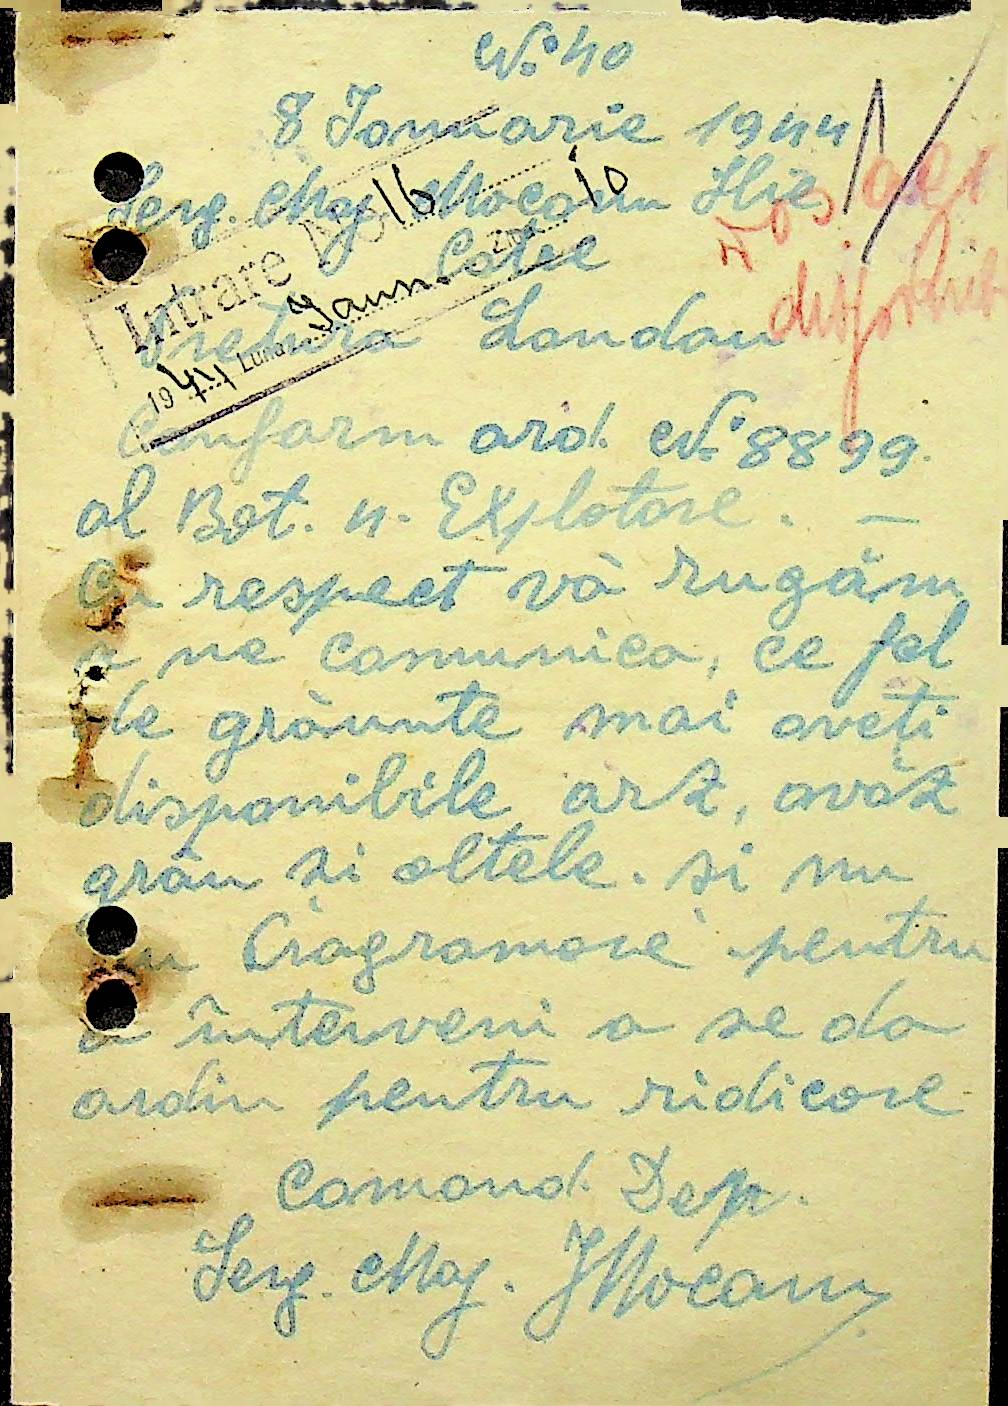 No 40
8 Ianuarie 1944
Serg. Maj. Mocanu Ilie
Catre
Pretura Landau
Intrare No 16
1944 Luna Ianu. Ziua 10
Conform ord. No 8899.
al Bat. 4. Explotare. —
Cu respect vă rugăm
a ne comunica, ce fel
de grăunte mai aveți
disponibile orz, ovăz
grâu si altele. si nu
pentru
a interveni a se da
ordin pentru ridicare
Comand. Dep.
Serg. Maj. I Mocanu